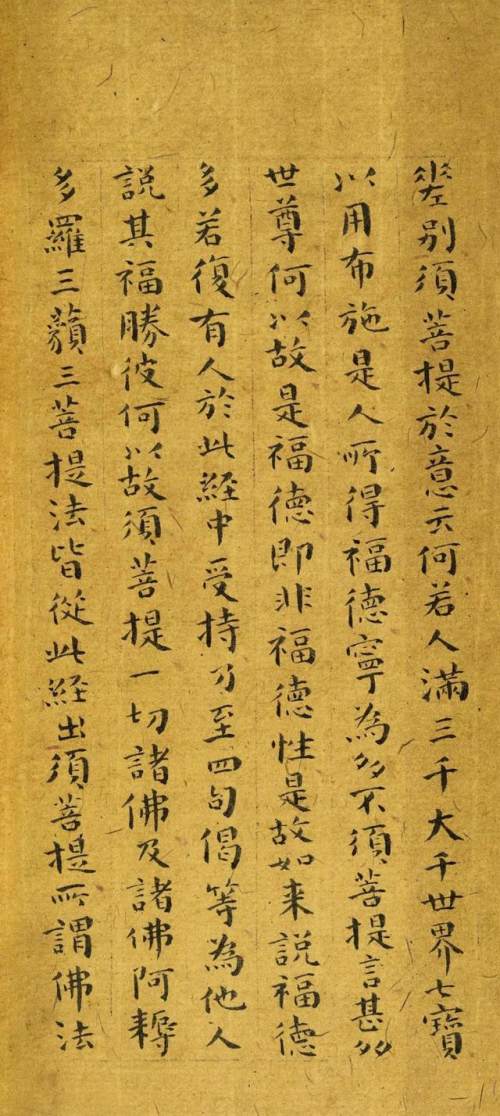 差別須菩提於意云何若人滿三千大千世界七寶
以用布施是人所得福德寧為多不須菩提言甚多
世尊何以故是福德即非福德性是故如来説福德
多若復有人於此経中受持乃至四句偈等為他人
説其福勝彼何以故須菩提一切諸佛及諸佛阿耨
多羅三藐三菩提法皆從此経出須菩提所謂佛法